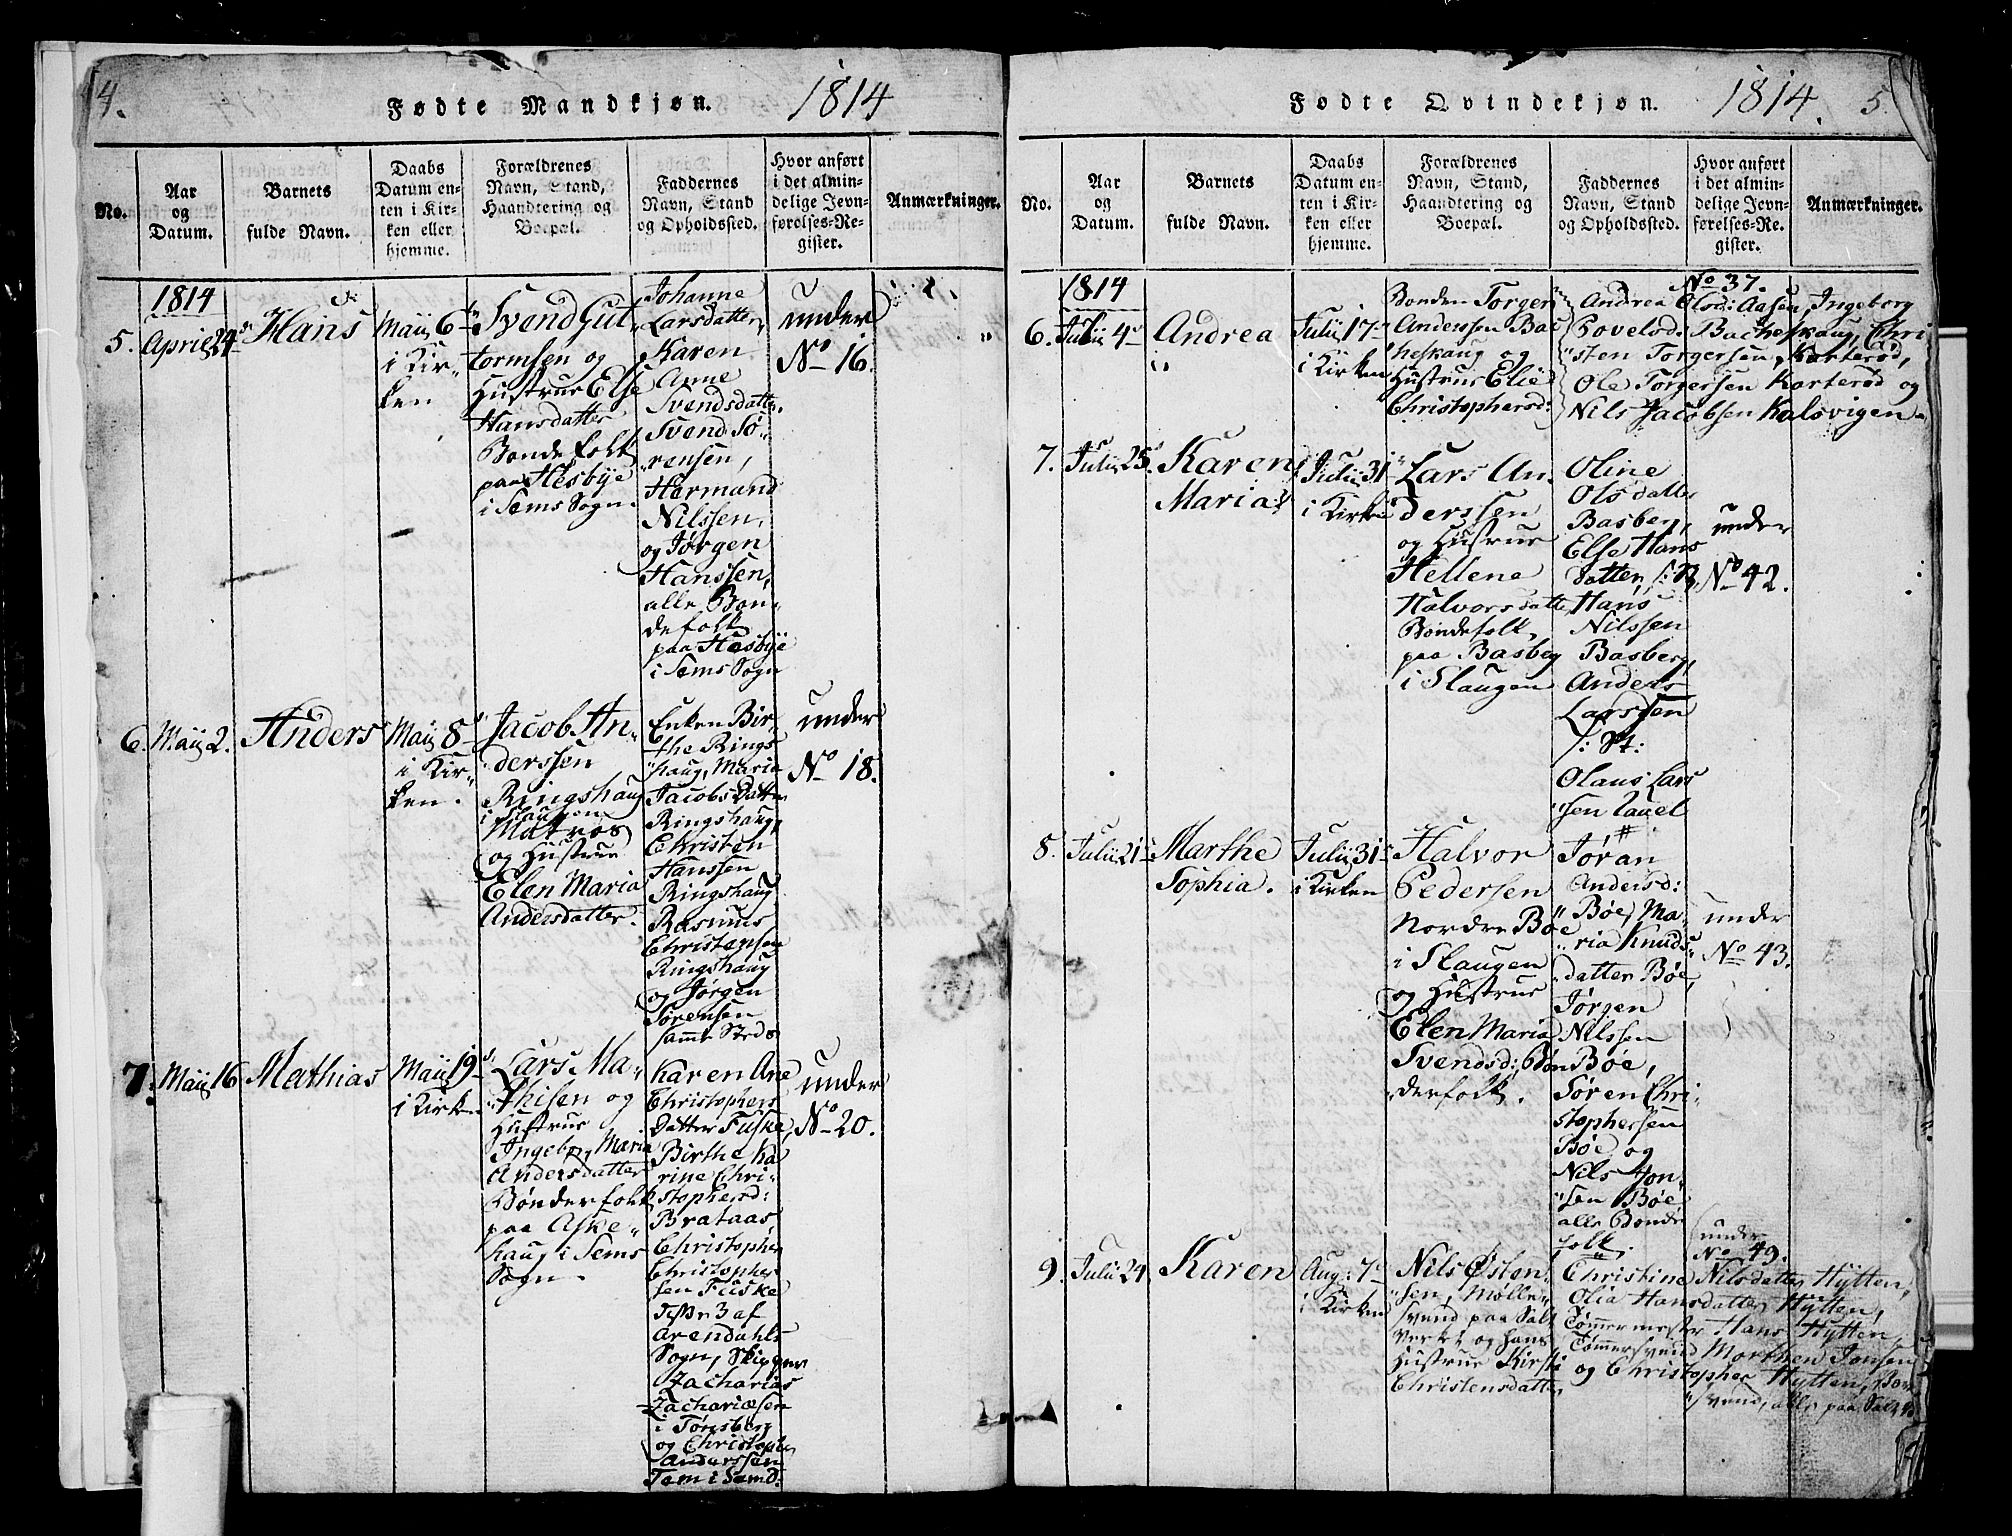 4.
Fødte Mandkjøn. 1814
No.
Aar
og
Datum.
Barnets
fulde Navn.
Daabs
Datum en-
ten i Kir-
ken eller
hjemme.
Forældrenes
Navn, Stand,
Haandtering og
Boepæl.
Faddernes
Navn, Stand
og Opholdssted.
Hvor anført
i det almin-
delige Jevn-
førelses-Re-
gister.
Anmærkninger.
1814
5. April 24
Hans
Maij 6
i Kir-
ken
Svend Gut
tormsen og
Hustrue Else
Hansdatter
Bondefolk
paa Hesbye
i Sems Sogn.
Johanne
Larsdatter,
Karen
Anne
Svendsdatter,
Svend Sø-
rensen,
Hermand
Nilssen,
og Jørgen
Hanssen,
alle Bon-
defolk
paa Hesbye
i Sems Sogn
under
No 16.
6. Maij 2.
Anders
Maij 8
i Kir-
ken.
Jacob An-
derssen
Ringshaug
i Slaugen
Matros
og Hustrue
Elen Maria
Andersdatter.
Enken Bir-
the Rings
haug, Maria
Jacobs Datter
Ringshaug,
Christen
Hanssen
Ringshaug
Rasmus
Christophsen
Ringshaug
og Jørgen
Sørensen
samme Steds
under
No 18.
7. Maij 16
Mathias
Maij 19
i Kirken
Lars Ma-
thisen og
Hustrue
Ingeborg Maria
Andersdatter
Bønderfolk
paa Aske-
haug i Sems
Sogn.
Karen Ane
Christophers
Datter Fuske,
Birthe Ka
rine Chri-
stophersd:
Brataas,
Christopher
Christopher
sen Fuske
disse 3 af
Arendahls
Sogn, Skipper
Zacharias
Zachariæsen
i Tønsberg
og Christopher
Anderssen
Tem i Samd:
under
No 20.
Fødte Qvindekjøn. 1814. 5.
No.
Aar
og
Datum.
Barnets
fulde Navn.
Daabs
Datum en-
ten i Kir-
ken eller
hjemme.
Forældrenes
Navn, Stand,
Haandtering og
Boepæl.
Faddernes
Navn, Stand
og Opholdssted.
Hvor anført
i det almin-
delige Jevn-
førelses-Re-
gister.
Anmærkninger.
1814
6. Julij 4
Andrea
Julij 17
i Kirken
Bonden Torger
Anderssen Bac
heskaug og
Hustrue Elie
Christophersd:
No 37.
Andrea Olsd: Aasen, Ingeborg
Povelsd: Bacheskaug, Chri
sten Torgersen Korterød,
Ole Torgersen Korterød og
Nils Jacobsen Kalsvigen
7. Julij 25
Karen
Maria
Julij 31
i Kirken
Lars An-
derssen
og Hustrue
Hellene
Halvorsdatter
Bøndefolk
paa Basberg
i Slaugen
Oline
Olsdatter
Basberg,
Else Hans
datter,
Hans
Nilssen
Basberg,
Anders
Larssen
Olaus Lars
sen
under
No 42.
8. Julij 21
Marthe
Sophia.
Julij 31
i Kirken
Halvor
Pedersen
Nordre Bøe
i Slaugen
og Hustrue
Elen Maria
Svendsd: Bøn
derfolk.
Jøran
Andersd:
Bøe, Ma-
ria Knuds
datter Bøe,
Jørgen
Nilssen
Bøe,
Søren Chri-
stophersen
Bøe og
Nils Jon-
sen Bøe
alle Bonde
folk.
under
No 43.
9. Julij 24
Karen
Aug: 7
i Kirken
Nils Østen-
sen, Mølle-
svend paa Salt
verket og hans
Hustrue Kirsti
Christensdatter
under
No 49.
Christine Nilsdatter Hytten,
Olia Hansdatter Hytten,
Tømmermester Hans Hytten,
Tømmersvend Morthen Jonsen
og Christopher Hytten,
svend, alle paa